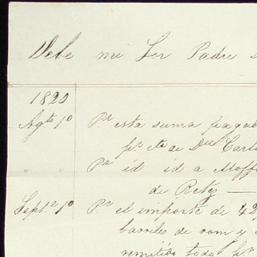 Debe mi Sor Padre
1820
Agto 10 Pr esta suma pagad
pr cta de Dn Carl
Pr id id a Maff
de Retz
Sept.e 10 Pr el importe de 42
barriles de rom y
remitido todo pr